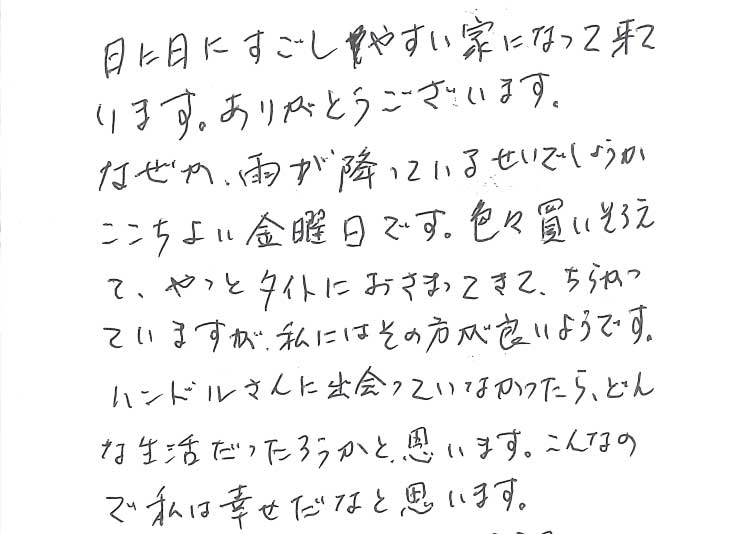 日に日にすごしやすい家になって来て
います。ありがとうございます。
なぜか、雨が降っているせいでしょうか
ここちよい金曜日です。色々買いそろえ
て、やっとタイトにおさまってきて、ちらかっ
ていますが、私にはその方が良いようです。
ハンドルさんに出会っていなかったら、どん
な生活だったろうかと、思います。こんなの
で私は幸せだなと思います。